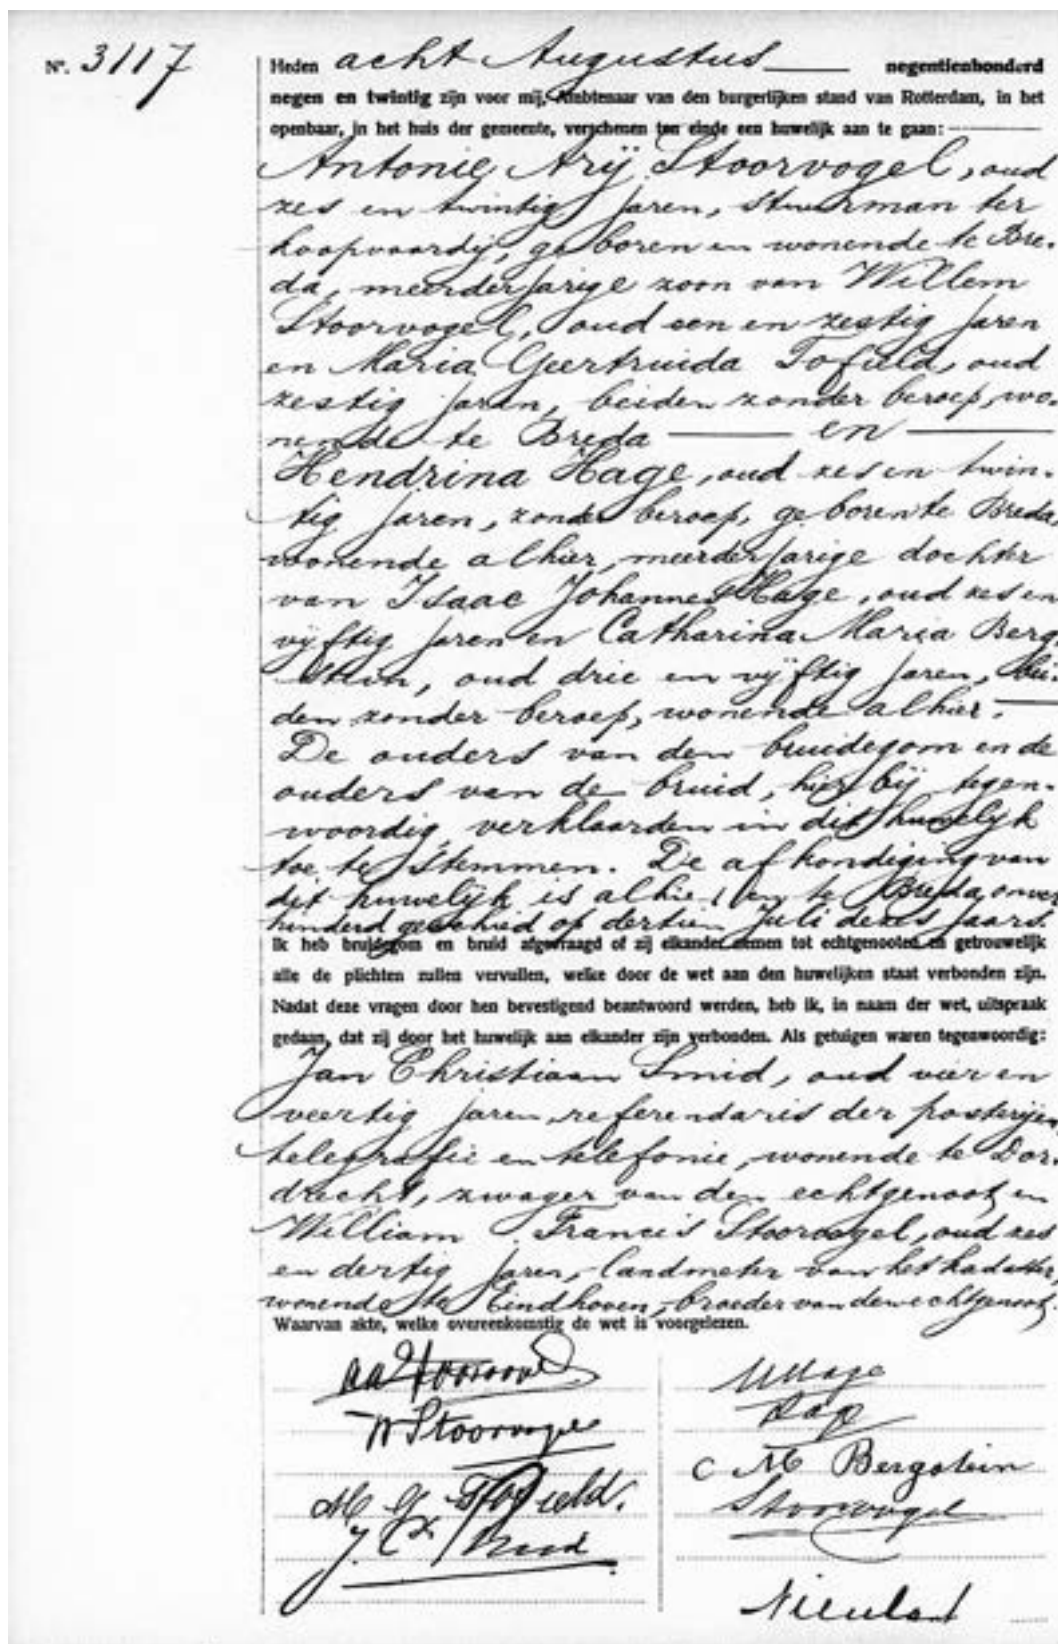 Nº. 3117
Heden acht Augustus negentienhonderd
negen en twintig zijn voor mij, Ambtenaar van den burgerlijken stand van Rotterdam, in het
openbaar, in het huis der gemeente, verschenen ten einde een huwelijk aan te gaan:
Antonie Arij Stoorvogel, oud
zes en twintig jaren, stuurman ter
koopvaardij, geboren en wonende te Bre-
da, meerderjarige zoon van Willem
Stoorvogel, oud een en zestig jaren
en Maria Geertruida Tofield, oud
zestig jaren, beiden zonder beroep, wo-
nende te Breda — en —
Hendrina Hage, oud zes en twin-
tig jaren, zonder beroep, geboren te Breda,
wonende alhier, meerderjarige dochter
van Isaac Johannes Hage, oud zes en
vijftig jaren en Catharina Maria Berg-
stein, oud drie en vijftig jaren, bei-
den zonder beroep, wonende alhier.
De ouders van den bruidegom en de
ouders van de bruid, hierbij tegen-
woordig, verklaarden in dit huwelijk
toe te stemmen. De afkondiging van
dit huwelijk is alhier en te Breda onver
hinderd geschied op dertien Juli dezes jaars.
Ik heb bruidegom en bruid afgevraagd of zij elkander nemen tot echtgenooten en getrouwelijk
alle de plichten zullen vervullen, welke door de wet aan den huwelijken staat verbonden zijn.
Nadat deze vragen door hen bevestigend beantwoord werden, heb ik, in naam der wet, uitspraak
gedaan, dat zij door het huwelijk aan elkander zijn verbonden. Als getuigen waren tegenwoordig:
Jan Christiaan Smid, oud vier en
veertig jaren, referendaris der posterijen,
telegrafie en telefonie, wonende te Dor-
drecht, zwager van den echtgenoot en
William Francis Stoorvogel, oud zes
en dertig jaren, landmeter van het kadaster,
wonende te Eindhoven, broeder van den echtgenoot.
Waarvan akte, welke overeenkomstig de wet is voorgelezen.
AA Stoorvogel
W Stoorvogel
M G Tofield.
J Chr Smid
Hage
Hage
C M Bergstein
Stoorvogel